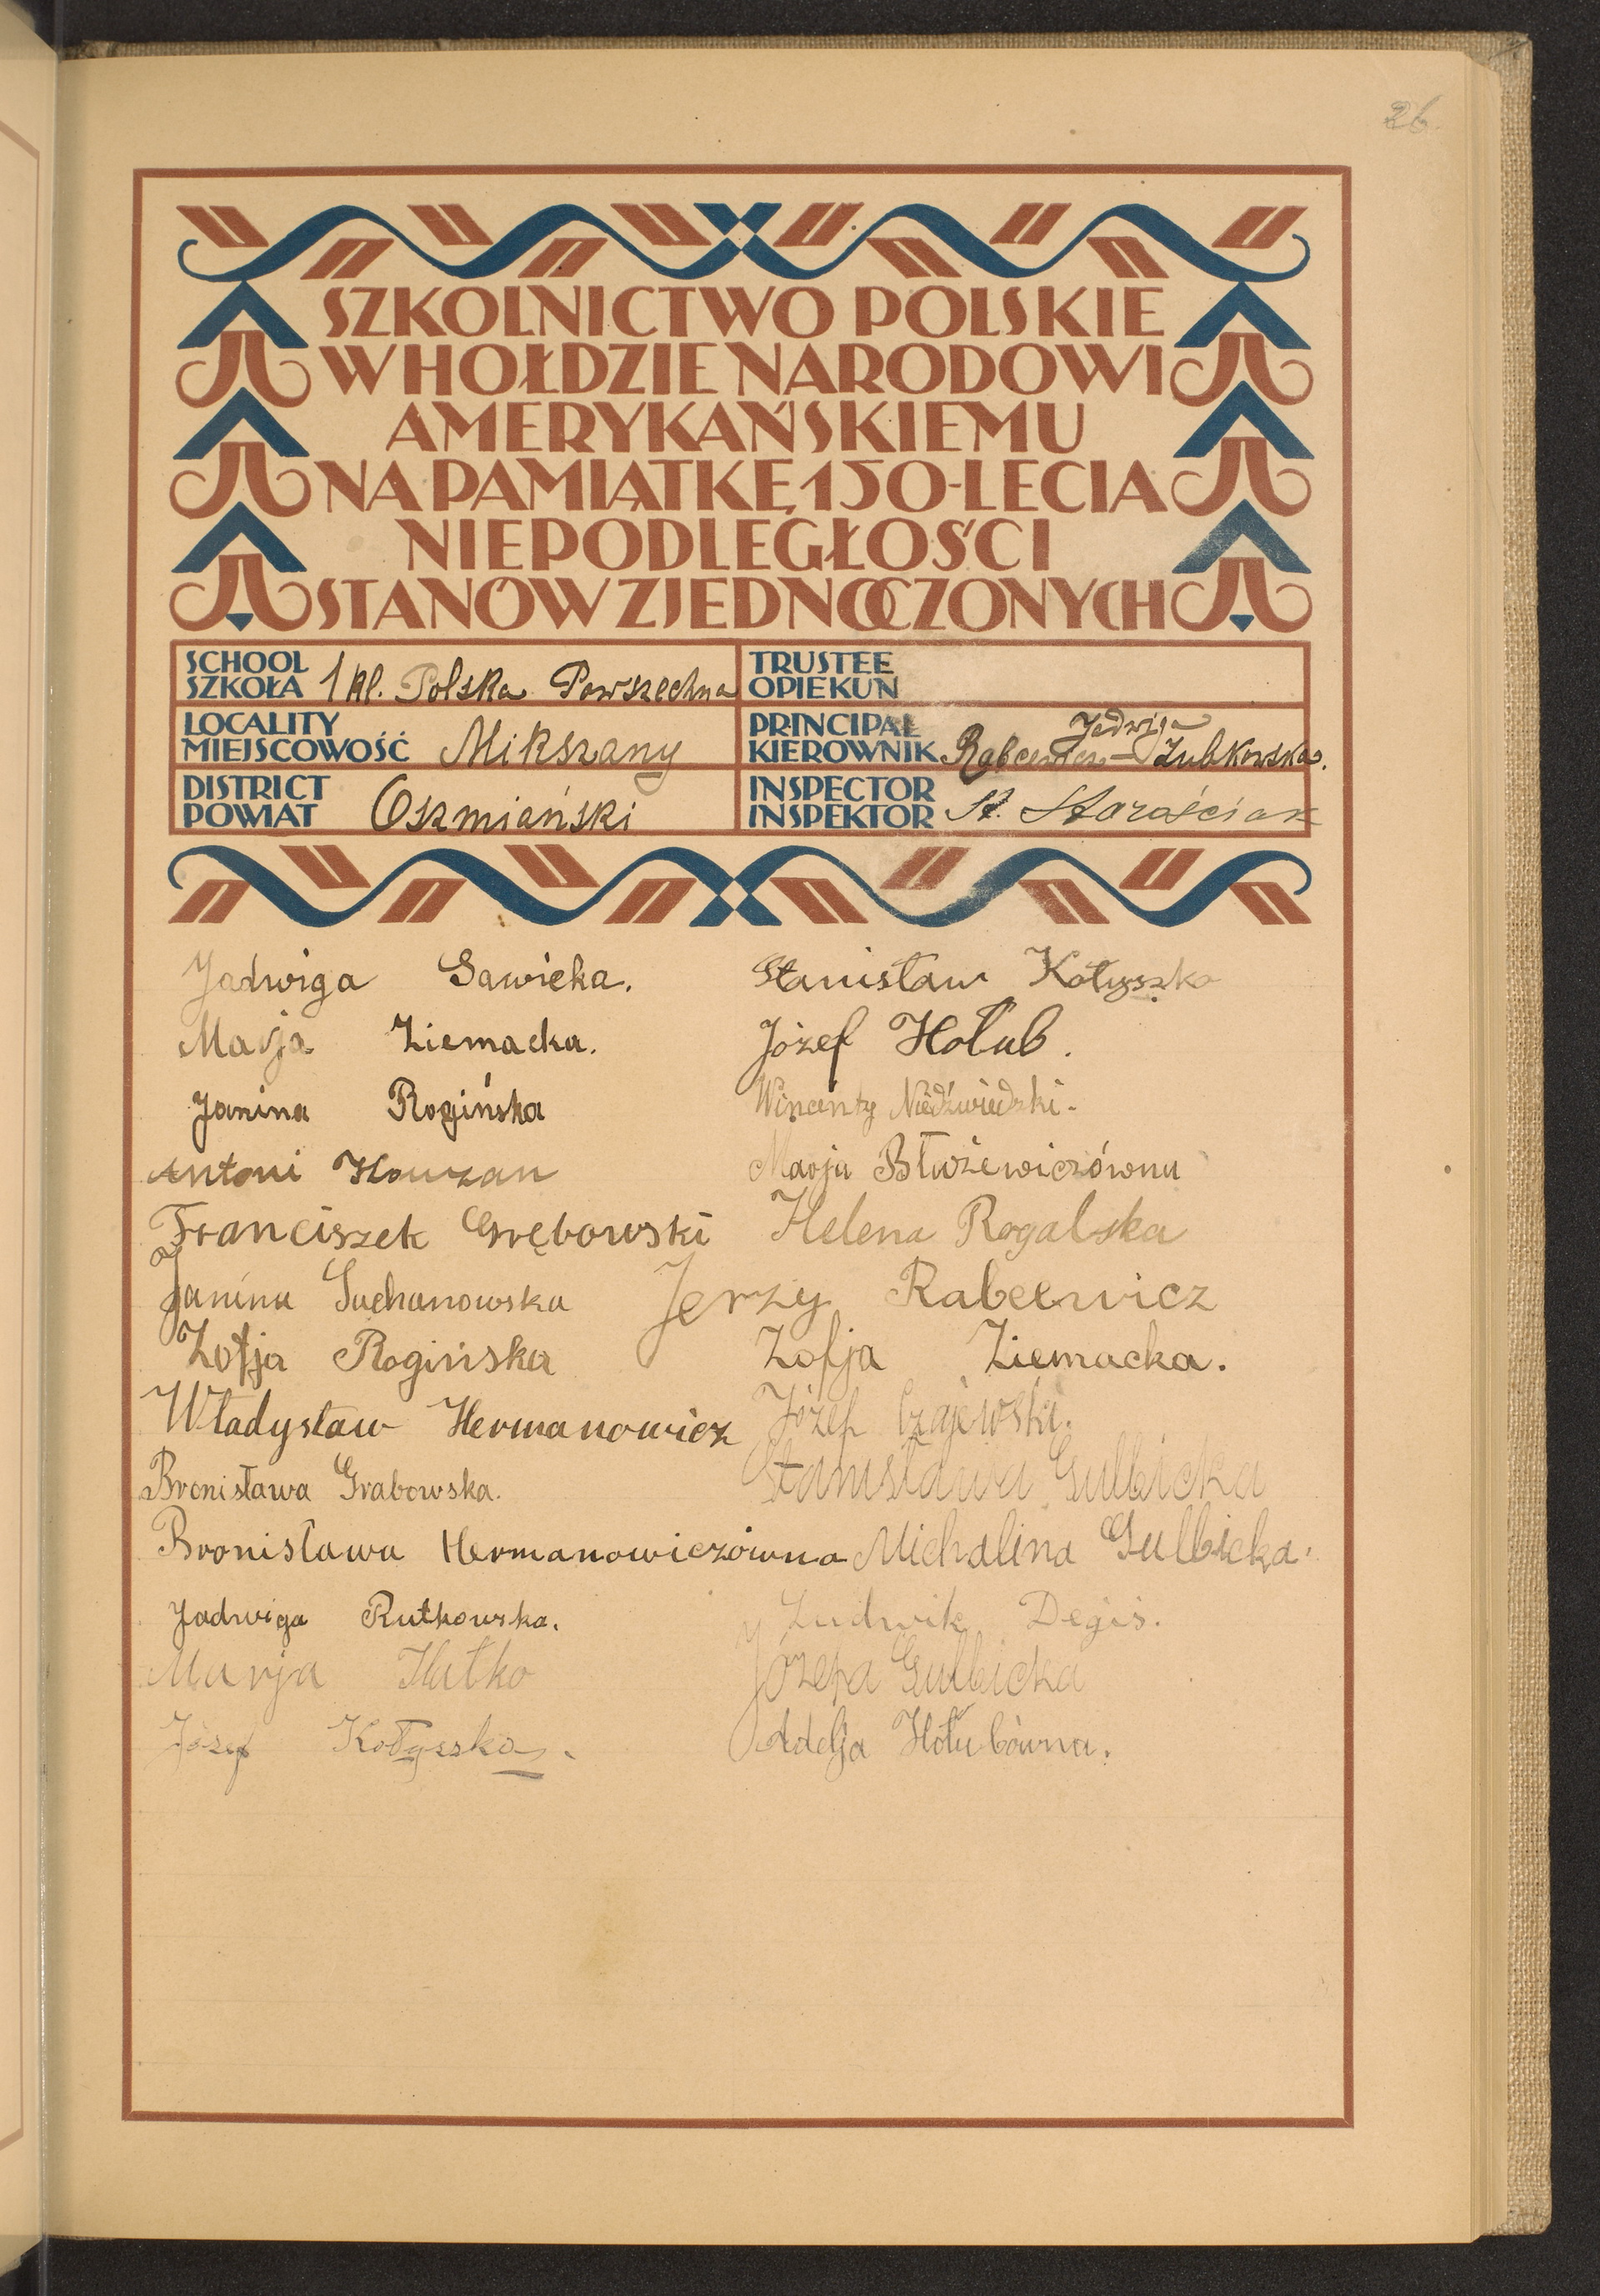 26.
SZKOLNICTWO POLSKIE
W HOŁDZIE NARODOWI
AMERYKAŃSKIEMU
NA PAMIĄTKĘ 150-LECIA
NIEPODLEGŁOŚCI
STANÓW ZJEDNOCZONYCH
SCHOOL
SZKOŁA 1 kl. Polska Powszechna
TRUSTEE
OPIEKUN
LOCALITY
MIEJSCOWOŚĆ Mikszany
PRINCIPAL
KIEROWNIK Jadwiga Rabcewicz-Zubkowska.
DISTRICT
POWIAT Oszmiański
INSPECTOR
INSPEKTOR St. Starościak
Jadwiga Sawicka.
Marja Ziemacka.
Janina Rogińska
Antoni
Franciszek Grębowski
Janina Suchanowska
Zofja Rogińska
Władysław Hermanowicz
Bronisława Grabowska.
Bronisława Hermanowiczówna
Jadwiga Rutkowska.
Marja Hutko
Józef Kołyszko.
Stanisław Kołyszko
Józef Hołub.
Wincenty Niedźwiedzki.
Marja Błużewiczówna
Helena Rogalska
Jerzy Rabcewicz
Zofja Ziemacka.
Józef Czajewski.
Stanisława Gulbicka
Michalina Gulbicka.
Ludwik Degis.
Józefa Gulbicka
Adelja Hołubówna.